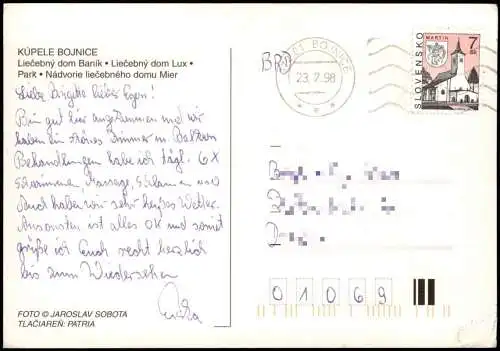 KÚPELE BOJNICE
Liečebný dom Baník • Liečebný dom Lux •
Park • Nádvorie liečebného domu Mier
Liebe Brigitte lieber Egon!
Bin gut hier angekommen und wir
haben ein schönes Zimmer m. Balkon
Behandlungen habe ich tägl. 6x
Schwimmen, Massage, Schlamm und
auch haben wir sehr heißes Wetter.
Ansonsten ist alles OK und somit
grüße ich Euch recht herzlich
bis zum Wiedersehen
FOTO © JAROSLAV SOBOTA
TLAČIAREŇ: PATRIA
BRD
BOJNICE
23.7.98
MARTIN
7
Sk
SLOVENSKO
01069